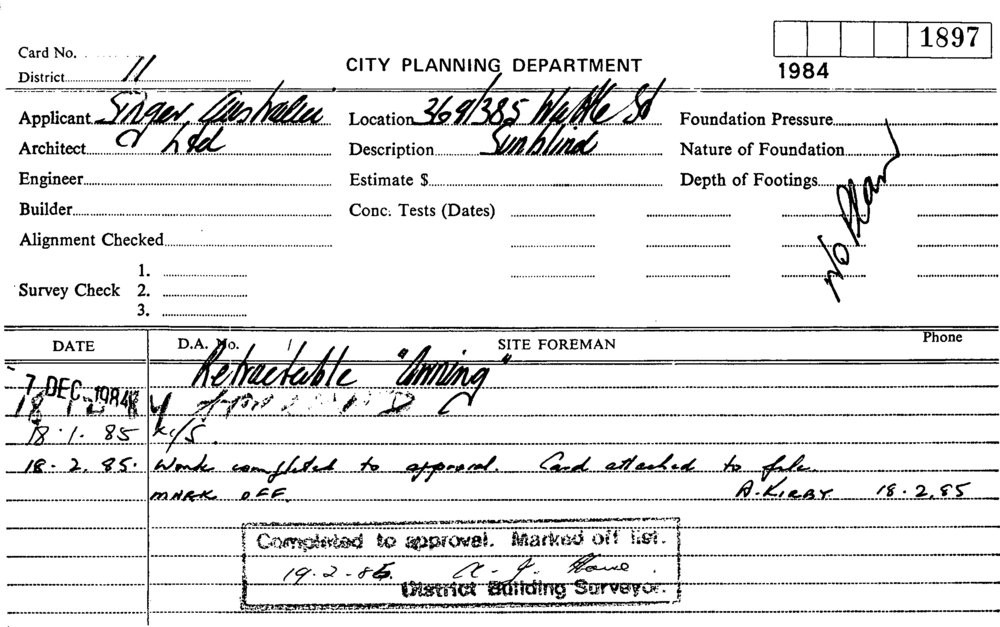 1897
Card No.
District 11
CITY PLANNING DEPARTMENT
1984
Applicant Singer Australia Location 369/385 Wattle St Foundation Pressure
Architect Ltd Description Sunblind Nature of Foundation
Engineer Estimate $ Depth of Footings
No Plan
Builder Conc. Tests (Dates)
Alignment Checked
1.
Survey Check 2.
3.
DATE D.A. No. / SITE FOREMAN Phone
Retractable "Awning"
7 DEC 1984
18.1.85 K/S.
18.2.85. Work completed to approval. Card attached to file.
MARK OFF. A. KIRBY 18.2.85
Completed to approval. Marked off list.
19.2.85. A. J.
District Building Surveyor.